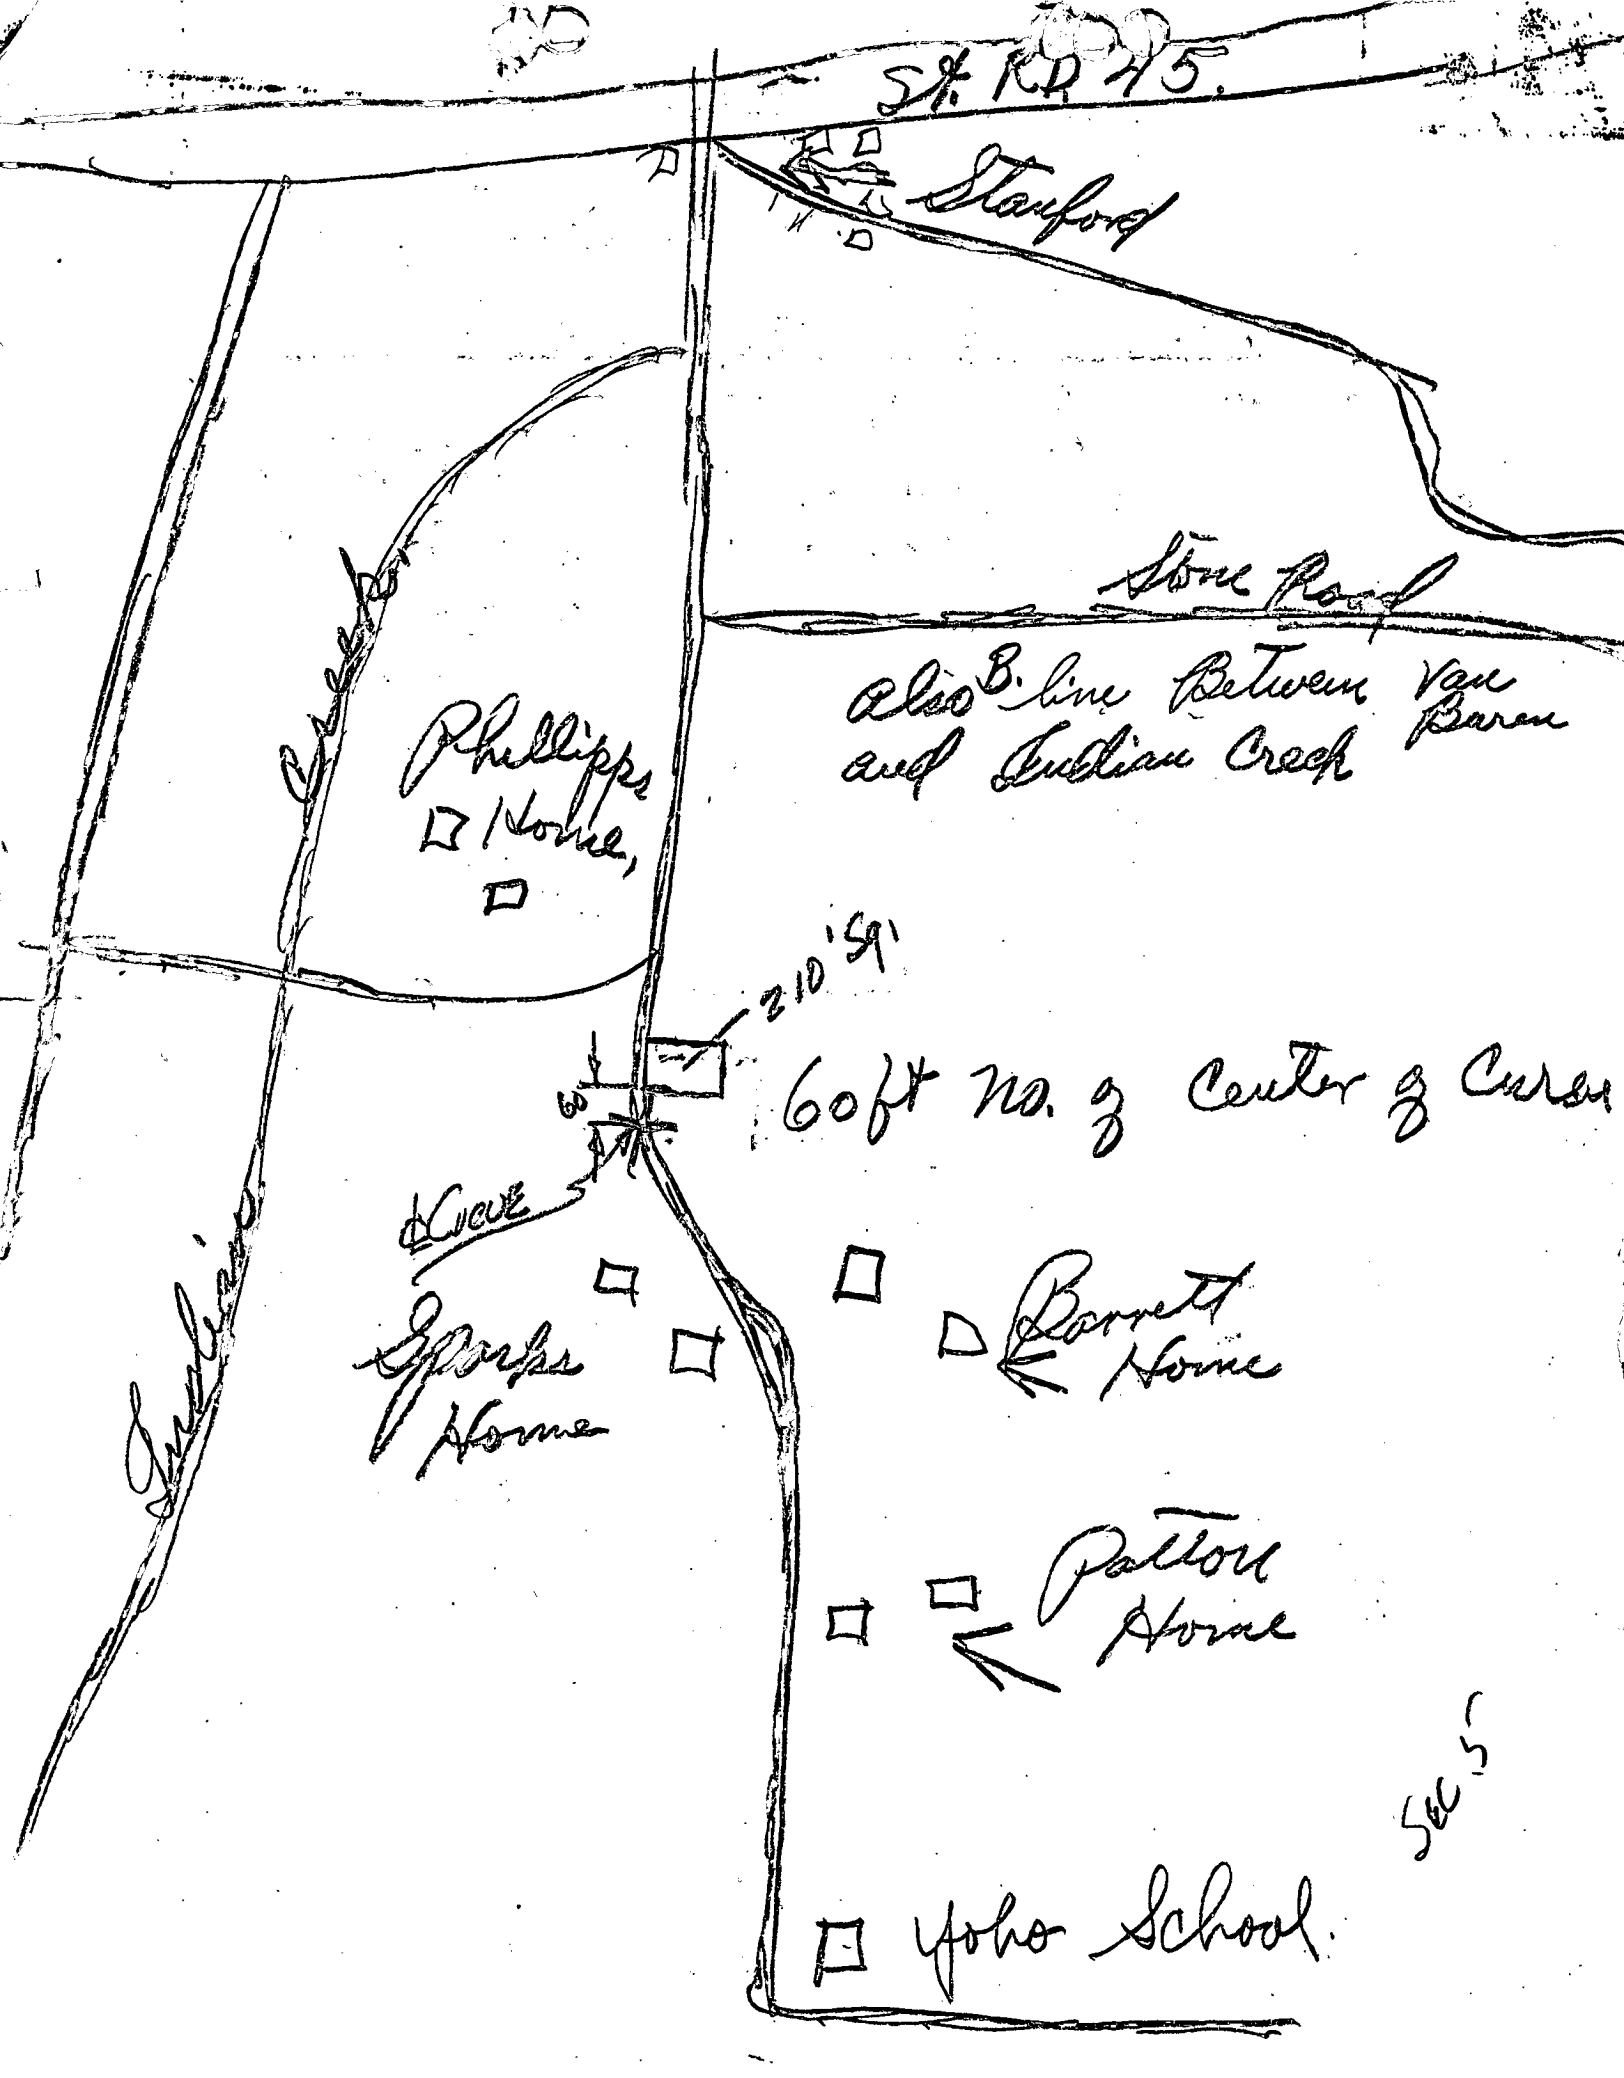 St. RD 45.
Stanford
Stone Road
also B. line Between Van Buren
and Indian Creek
Creek
Phillipps
Home,
210' Sq.
60
60 ft No. of Center of Curve
₵ Curve
Sparks
Home
Barrett
Home
Indian
Patton
Home
SEC 5
Yoho School.